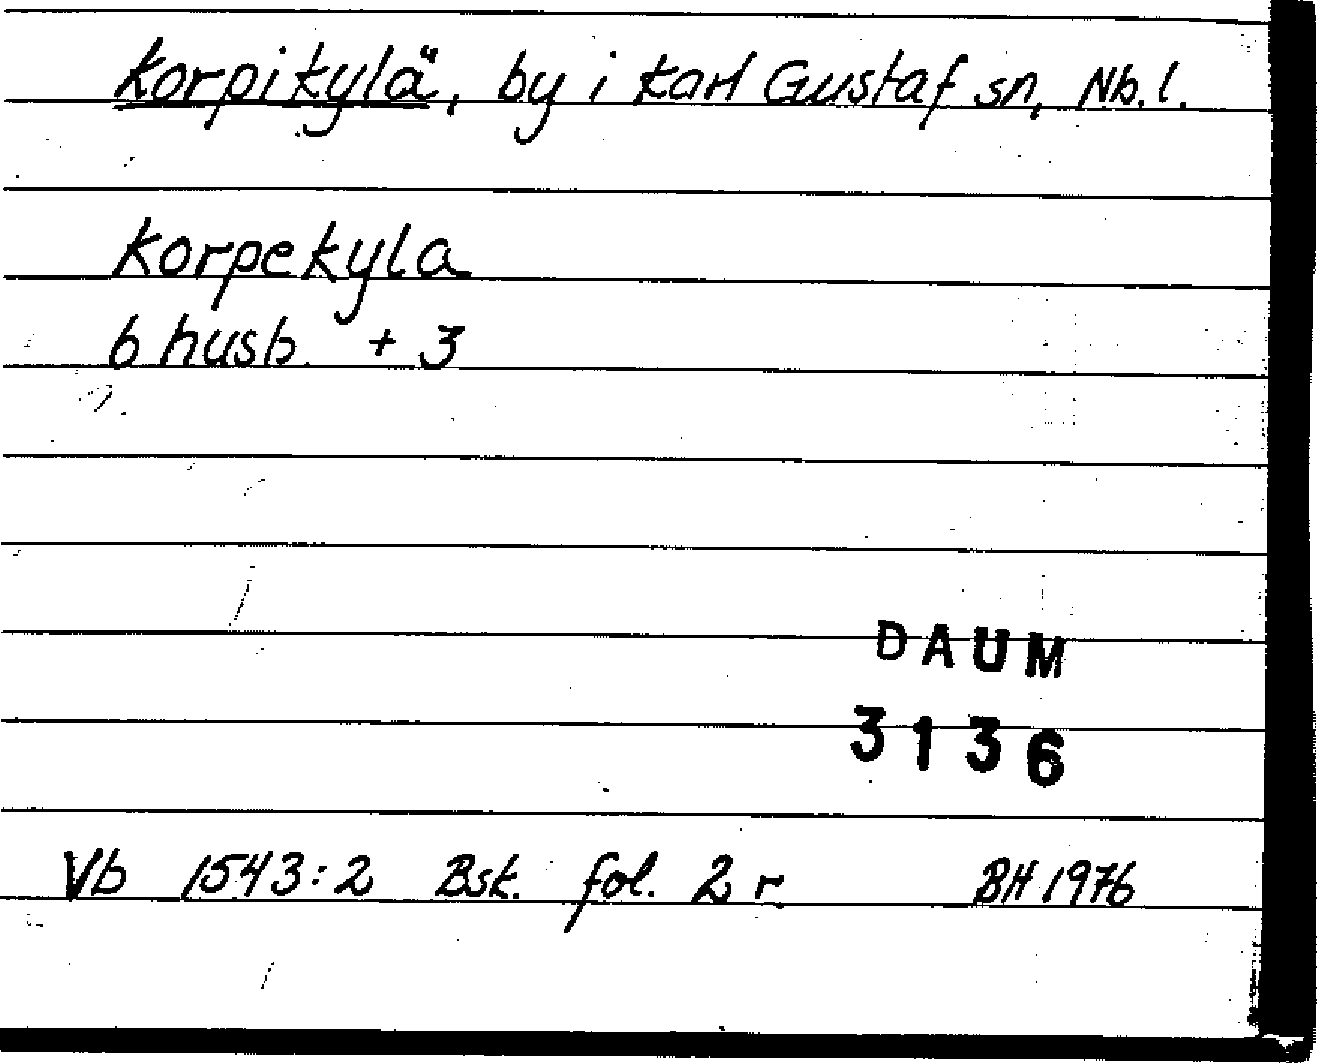 Korpikylä, by i Karl Gustaf sn, Nb.l.
Korpekyla
6 husb. + 3
DAUM
3136
Vb 1543:2 Bsk. fol. 2 r. BH 1976